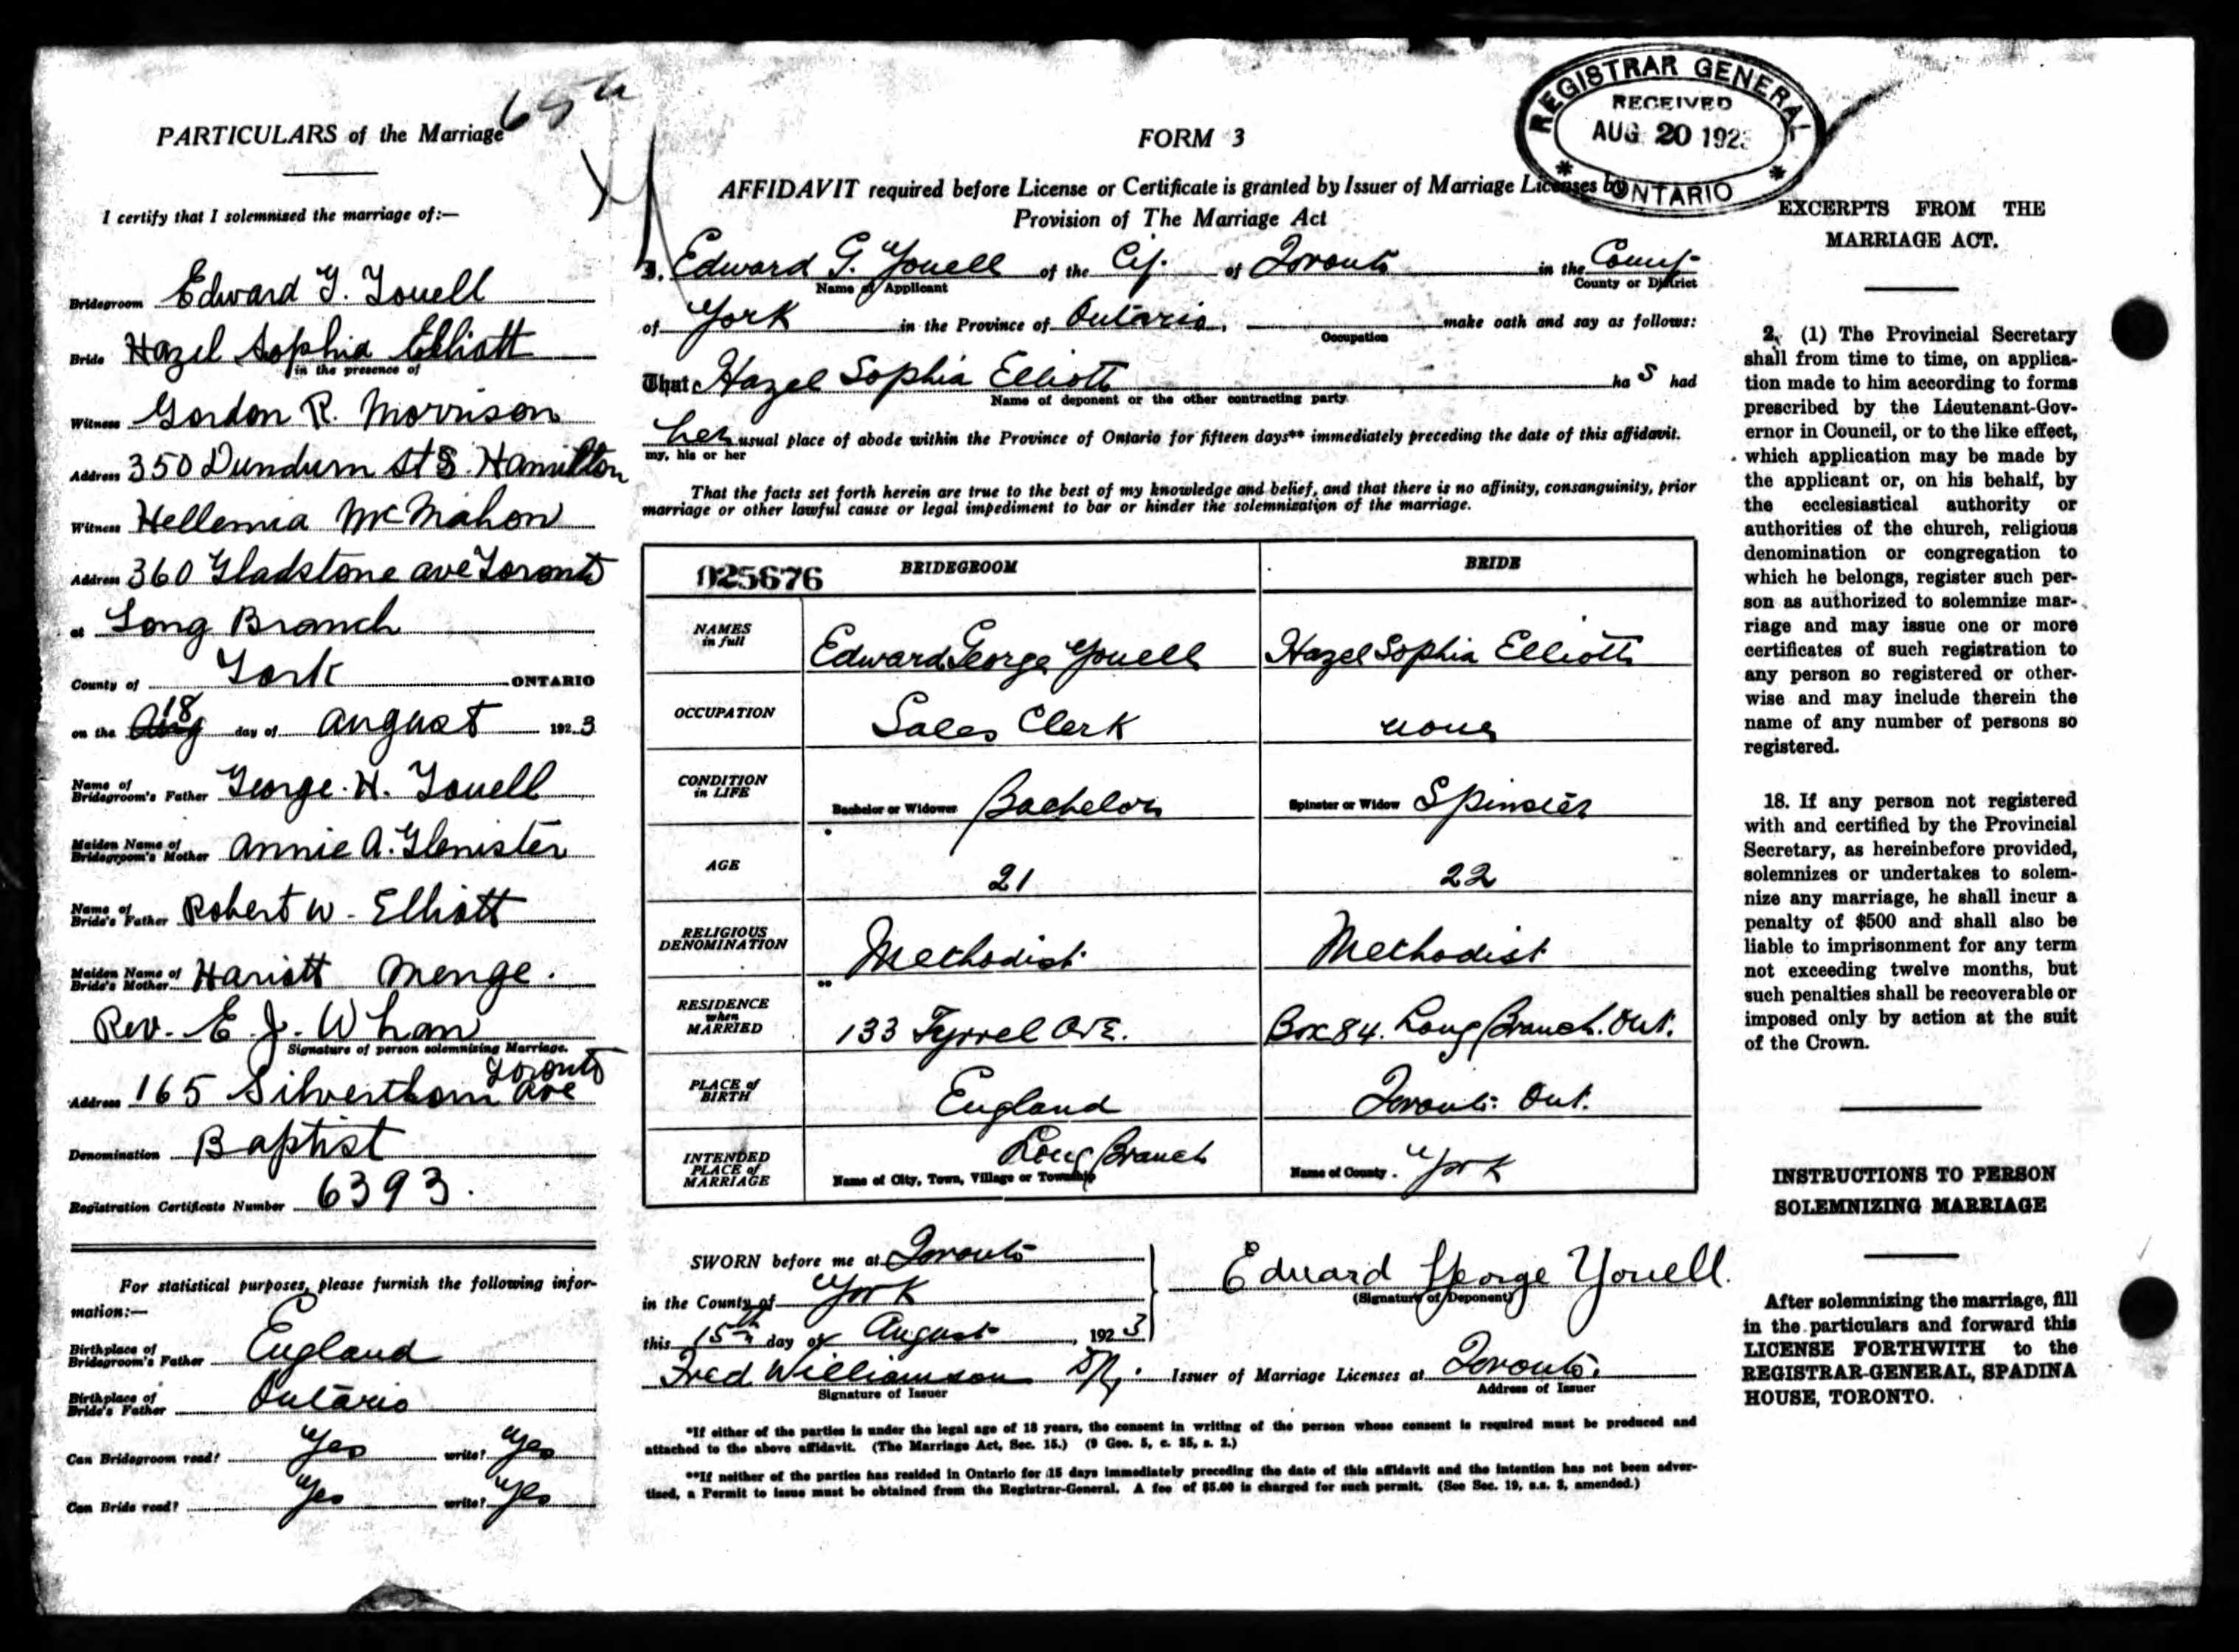 65
PARTICULARS of the Marriage
I certify that I solemnised the marriage of:—
Bridegroom Edward G. Youell
Bride Hazel Sophia Elliott
in the presence of
Witness Gordon R. Morrison
Address 350 Dundurn St S. Hamilton
Witness Hellenia McMahon
Address 360 Gladstone ave Toronto
at Long Branch
County of York ONTARIO
18
on the Aug day of August 1923
Name of
Bridegroom's Father George. H. Youell
Maiden Name of
Bridegroom's Mother Annie A. Glenister
Name of
Bride's Father Robert W. Elliott
Maiden Name of
Bride's Mother Hariott Menge.
Rev. E. J. Whan
Signature of person solemnizing Marriage.
Toronto
Address 165 Silverthorn Ave
Denomination Baptist
Registration Certificate Number 6393.
For statistical purposes, please furnish the following infor-
mation:—
Birthplace of
Bridegroom's Father England
Birthplace of
Bride's Father Ontario
Can Bridegroom read? Yes write? Yes
Can Bride read? Yes write? Yes
REGISTRAR GENERAL
RECEIVED
AUG 20 192
ONTARIO
FORM 3
AFFIDAVIT required before License or Certificate is granted by Issuer of Marriage Licenses by
Provision of The Marriage Act
I, Edward G. Youell of the City of Toronto in the County
Name of Applicant County or District
of York in the Province of Ontario, make oath and say as follows:
Occupation
That Hazel Sophia Elliott ha s had
Name of deponent or the other contracting party
her usual place of abode within the Province of Ontario for fifteen days** immediately preceding the date of this affidavit.
my, his or her
That the facts set forth herein are true to the best of my knowledge and belief, and that there is no affinity, consanguinity, prior
marriage or other lawful cause or legal impediment to bar or hinder the solemnization of the marriage.
025676 BRIDEGROOM BRIDE
NAMES
in full Edward George Youell Hazel Sophia Elliott
OCCUPATION Sales Clerk none
CONDITION
in LIFE Bachelor or Widower Bachelor Spinster or Widow Spinster
AGE 21 22
RELIGIOUS
DENOMINATION Methodist Methodist
RESIDENCE
when
MARRIED 133 Tyrrel Ave. Box 84. Long Branch. Ont.
PLACE of
BIRTH England Toronto Ont.
INTENDED
PLACE of
MARRIAGE Long Branch York
Name of City, Town, Village or Township Name of County
SWORN before me at Toronto
in the County of York
this 15th day of August, 1923
Edward George Youell.
(Signature of Deponent)
Fred Williamson Issuer of Marriage Licenses at Toronto.
Signature of Issuer Address of Issuer
*If either of the parties is under the legal age of 18 years, the consent in writing of the person whose consent is required must be produced and
attached to the above affidavit. (The Marriage Act, Sec. 15.) (9 Geo. 5, c. 35, s. 2.)
**If neither of the parties has resided in Ontario for 15 days immediately preceding the date of this affidavit and the intention has not been adver-
tised, a Permit to issue must be obtained from the Registrar-General. A fee of $5.00 is charged for such permit. (See Sec. 19, s.s. 3, amended.)
EXCERPTS FROM THE
MARRIAGE ACT.
2. (1) The Provincial Secretary
shall from time to time, on applica-
tion made to him according to forms
prescribed by the Lieutenant-Gov-
ernor in Council, or to the like effect,
which application may be made by
the applicant or, on his behalf, by
the ecclesiastical authority or
authorities of the church, religious
denomination or congregation to
which he belongs, register such per-
son as authorized to solemnize mar-
riage and may issue one or more
certificates of such registration to
any person so registered or other-
wise and may include therein the
name of any number of persons so
registered.
18. If any person not registered
with and certified by the Provincial
Secretary, as hereinbefore provided,
solemnizes or undertakes to solem-
nize any marriage, he shall incur a
penalty of $500 and shall also be
liable to imprisonment for any term
not exceeding twelve months, but
such penalties shall be recoverable or
imposed only by action at the suit
of the Crown.
INSTRUCTIONS TO PERSON
SOLEMNIZING MARRIAGE
After solemnizing the marriage, fill
in the particulars and forward this
LICENSE FORTHWITH to the
REGISTRAR-GENERAL, SPADINA
HOUSE, TORONTO.